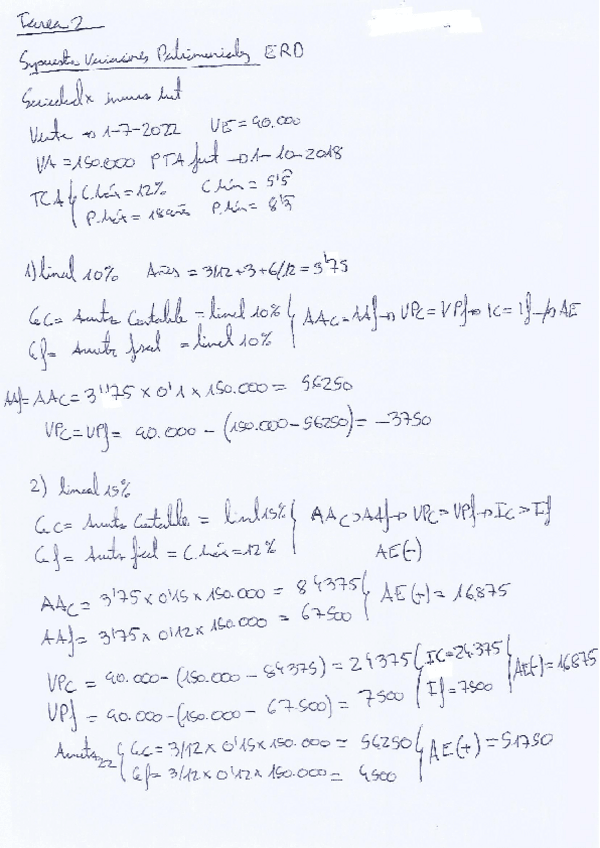 Tarea 2
Supuesto Variaciones Patrimoniales ERD
Sociedad x
Venta → 1-7-2022 VE = 90.000
VA = 150.000 PTA → 1-10-2018
TCA { C.Máx = 12% C.Mín = 5'5
P.Máx = 18 años P.Mín = 8'3
1) lineal 10% Años = 3/12 + 3 + 6/12 = 3'75
Gc = Amtz Contable = lineal 10% { AAc = AAf → VPc = VPf → Ic = If → AE
Gf = Amtz fiscal = lineal 10%
AAf = AAc = 3'75 x 0'1 x 150.000 = 56250
VPc = VPf = 90.000 - (150.000 - 56250) = -3750
2) lineal 15%
Gc = Amtz Contable = lineal 15% { AAc > AAf → VPc > VPf → Ic > If
Gf = Amtz fiscal = C.Máx = 12% AE(-)
AAc = 3'75 x 0'15 x 150.000 = 84375 { AE(+) = 16.875
AAf = 3'75 x 0'12 x 150.000 = 67500
VPc = 90.000 - (150.000 - 84375) = 24375 { Ic = 24.375 { AE(-) = 16875
VPf = 90.000 - (150.000 - 67.500) = 7500 If = 7500
Amtz22 { Gc = 3/12 x 0'15 x 150.000 = 56250 { AE(+) = 51750
Gf = 3/12 x 0'12 x 150.000 = 4500